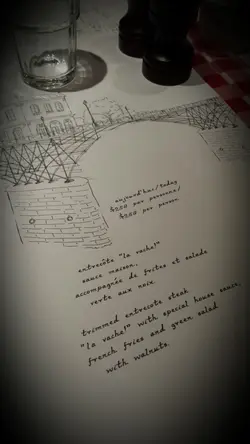 aujourd'hui/today
$29.00 par personne/
$29.00 per person
entrecôte "la vache!"
sauce maison,
accompagnée de frites et salade
verte aux noix.
trimmed entrecote steak
"la vache!" with special house sauce,
french fries and green salad
with walnuts.